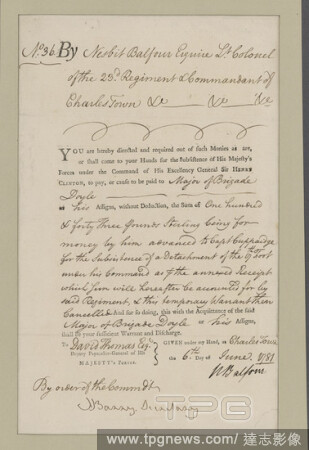 No. 36. By Nesbit Balfour Esquire Lt. Colonel
of the 23d. Regiment & Commandant of
Charles Town &c &c &c
YOU are hereby directed and required out of such Monies as are,
or shall come to your Hands for the Subsistence of His Majesty's
Forces under the Command of His Excellency General Sir HENRY
CLINTON, to pay, or cause to be paid to Major of Brigade
Doyle
or his Assigns, without Deduction, the Sum of One hundred
& forty Three Pounds Sterling being for
money by him advanced to Capt. Cuppaidge
for the Subsistence of a detachment of the
under his Command as p the annexed Receipt
which Sum will hereafter be accounted for by
said Regiment, & this temporary Warrant then
Cancelled And for so doing, this with the Acquittance of the said
Major of Brigade Doyle or his Assigns,
shall be your sufficient Warrant and Discharge.
To David Thomas Esq. GIVEN under my Hand, at Charles Town
Deputy Paymaster-General of His the 6th. Day of June 1781
MAJESTY'S Forces. NBalfour
By order of the Commdt.
Secretary
TPG
www.tpgnews.com / 達志影像